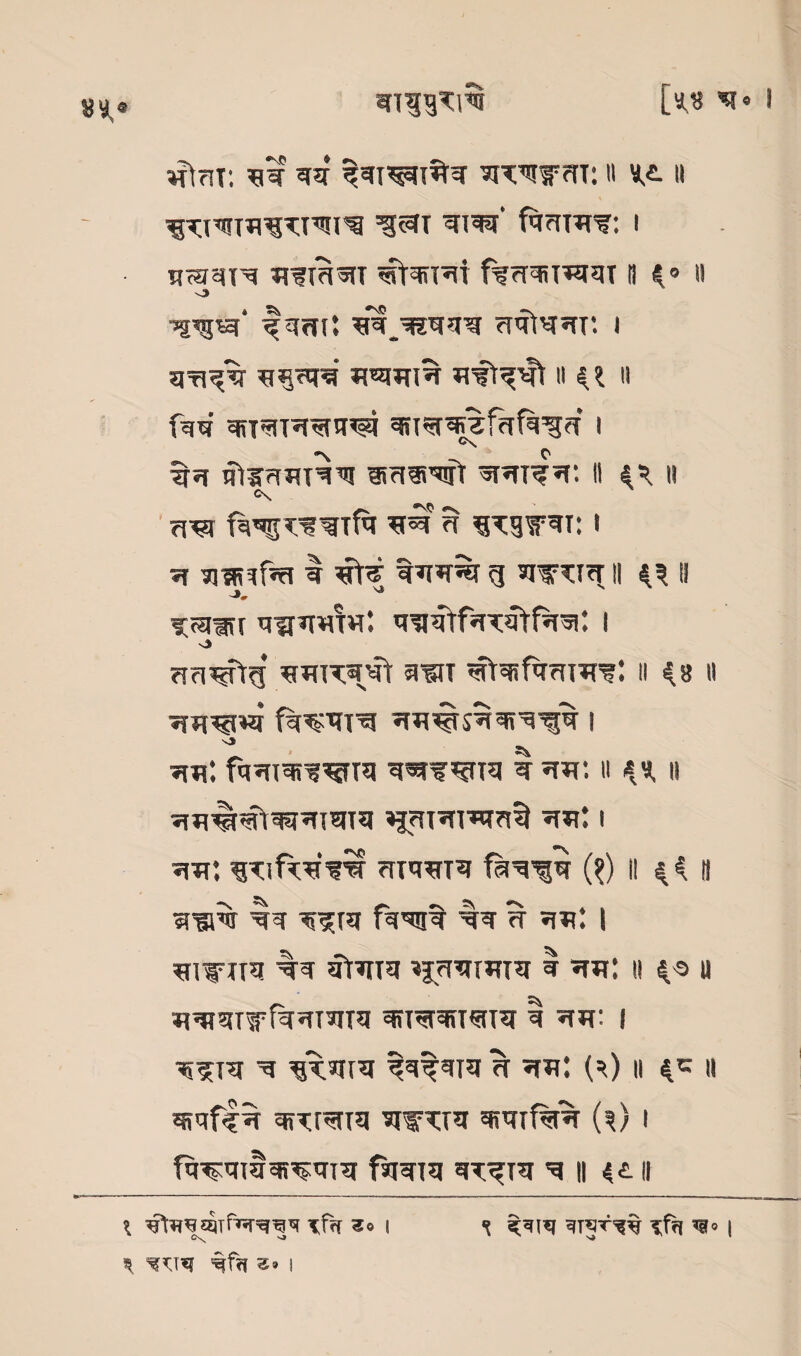 ४५० वायुपुराणे [५४ अ० ।
भीताः सर्व्वे वयं देवास्त्वामेव शरणङ्गताः ॥ ५९ ॥
सुराणामसुराणाञ्च श्रुत्वा वाक्यं पितामहः ।
प्रत्युवाच महातेजा लोकानां हितकाम्यया ॥ ६० ॥
शृणुध्वं देवताः सर्व्वे ऋषयश्च तपोधनाः ।
यत्तदग्रे समुत्पन्नं मथ्यमाने महोदधौ ॥ ६१ ॥
विषं कालानलप्रख्यं कालकूटेतिविश्रुतं ।
येन प्रोद्भूतमात्रेण कृतः कृष्णो जनार्द्दनः ॥ ६२ ॥
तस्य विष्णुरहञ्चापि सर्व्वे ते सुरपुङ्गवाः ।
न शक्नुवन्ति वै सोढुं वेगमन्ये तु शङ्करात् ॥ ६३ ॥
इत्युक्त्वा पद्मगर्भाभः पद्मयोनिरयोनिजः ।
ततः स्तोतुं समारब्धो ब्रह्मा लोकपितामहः ॥ ६४ ॥
नमस्तुभ्यं विरूपाक्ष नमस्तेऽनेकचक्षुषे ।
नमः पिनाकहस्ताय वज्रहस्ताय वै नमः ॥ ६५ ॥
नमस्त्रैलोक्यनाथाय भूतानाम्पतये नमः ।
नमः सुरारिसंहर्त्रे तापसाय त्रिचक्षुषे (१) ॥ ६६ ॥
ब्रह्मणे चैव रुद्राय विष्णवे चैव ते नमः ।
साङ्ख्याय चैव योगाय भूतग्रामाय वै नमः ॥ ६७ ॥
मन्मथाङ्गविनाशाय कालकालाय वै नमः ।
रुद्राय च सुरेशाय देवदेवाय ते नमः (२) ॥ ६८ ॥
कपर्द्दिने करालाय शङ्कराय कपालिने (३) ।
विरूपायैकरूपाय शिवाय वरदाय च ॥ ६९ ॥
१ सोमसूर्य्याग्निचक्षुषे इति ट० । २ देवाय इति ख० ।
३ ट० ।